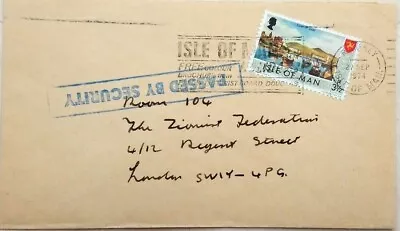 ISLE OF MAN
ISLE OF MAN
3½
SEP
1974
PASSED BY SECURITY
Room 104
The Zionist Federation
4/12 Regent Street
London SW1Y-4PG.